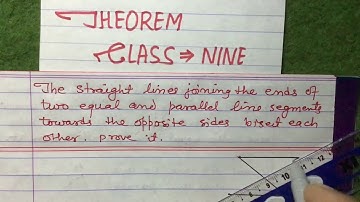 THEOREM
CLASS ⇒ NINE
The straight lines joining the ends of
two equal and parallel line segments
towards the opposite sides bisect each
other. prove it.
8 9 10 11 12